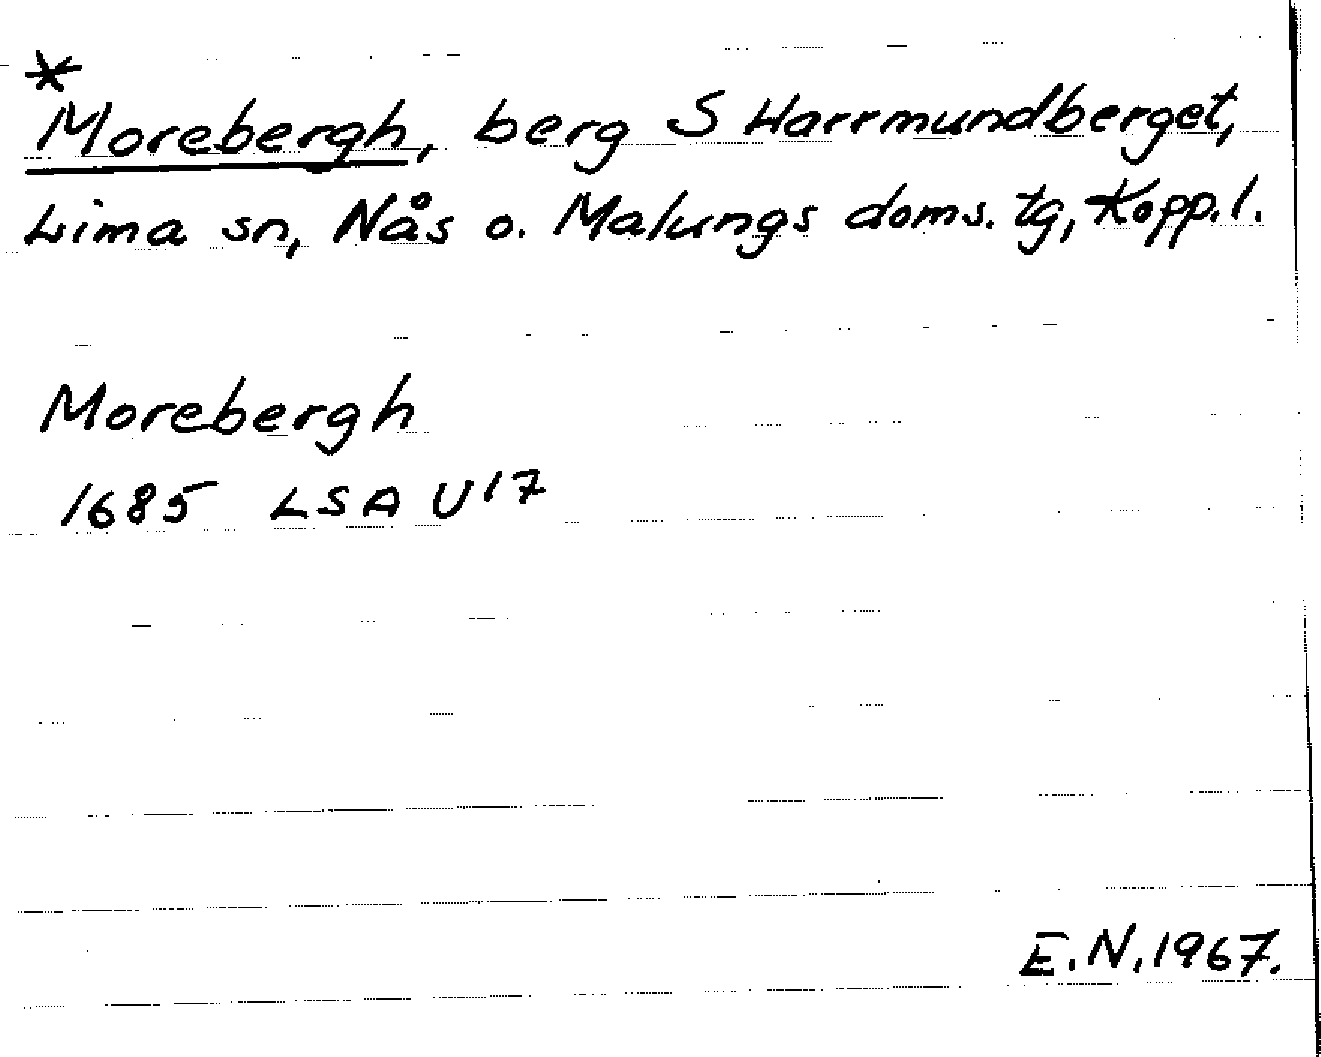 *
Morebergh, berg S Harrmundberget,
Lima sn, Nås o. Malungs doms. tg, Kopp. l.
Morebergh
1685 LSA U17
E. N. 1967.